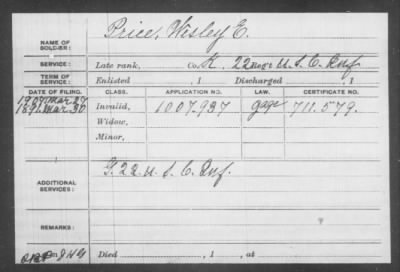 NAME OF SOLDIER: Price, Wisley E.
SERVICE: Late rank, Co. K, 22 Reg't U.S.C. Inf.
TERM OF SERVICE: Enlisted , 1 Discharged , 1
DATE OF FILING. CLASS. APPLICATION NO. LAW. CERTIFICATE NO.
1907 Mar 27
1891 Mar 30 Invalid, 1007.937 711.579.
Widow,
Minor,
ADDITIONAL SERVICES: G. 22. U.S.C. Inf.
REMARKS:
Died , 1 , at